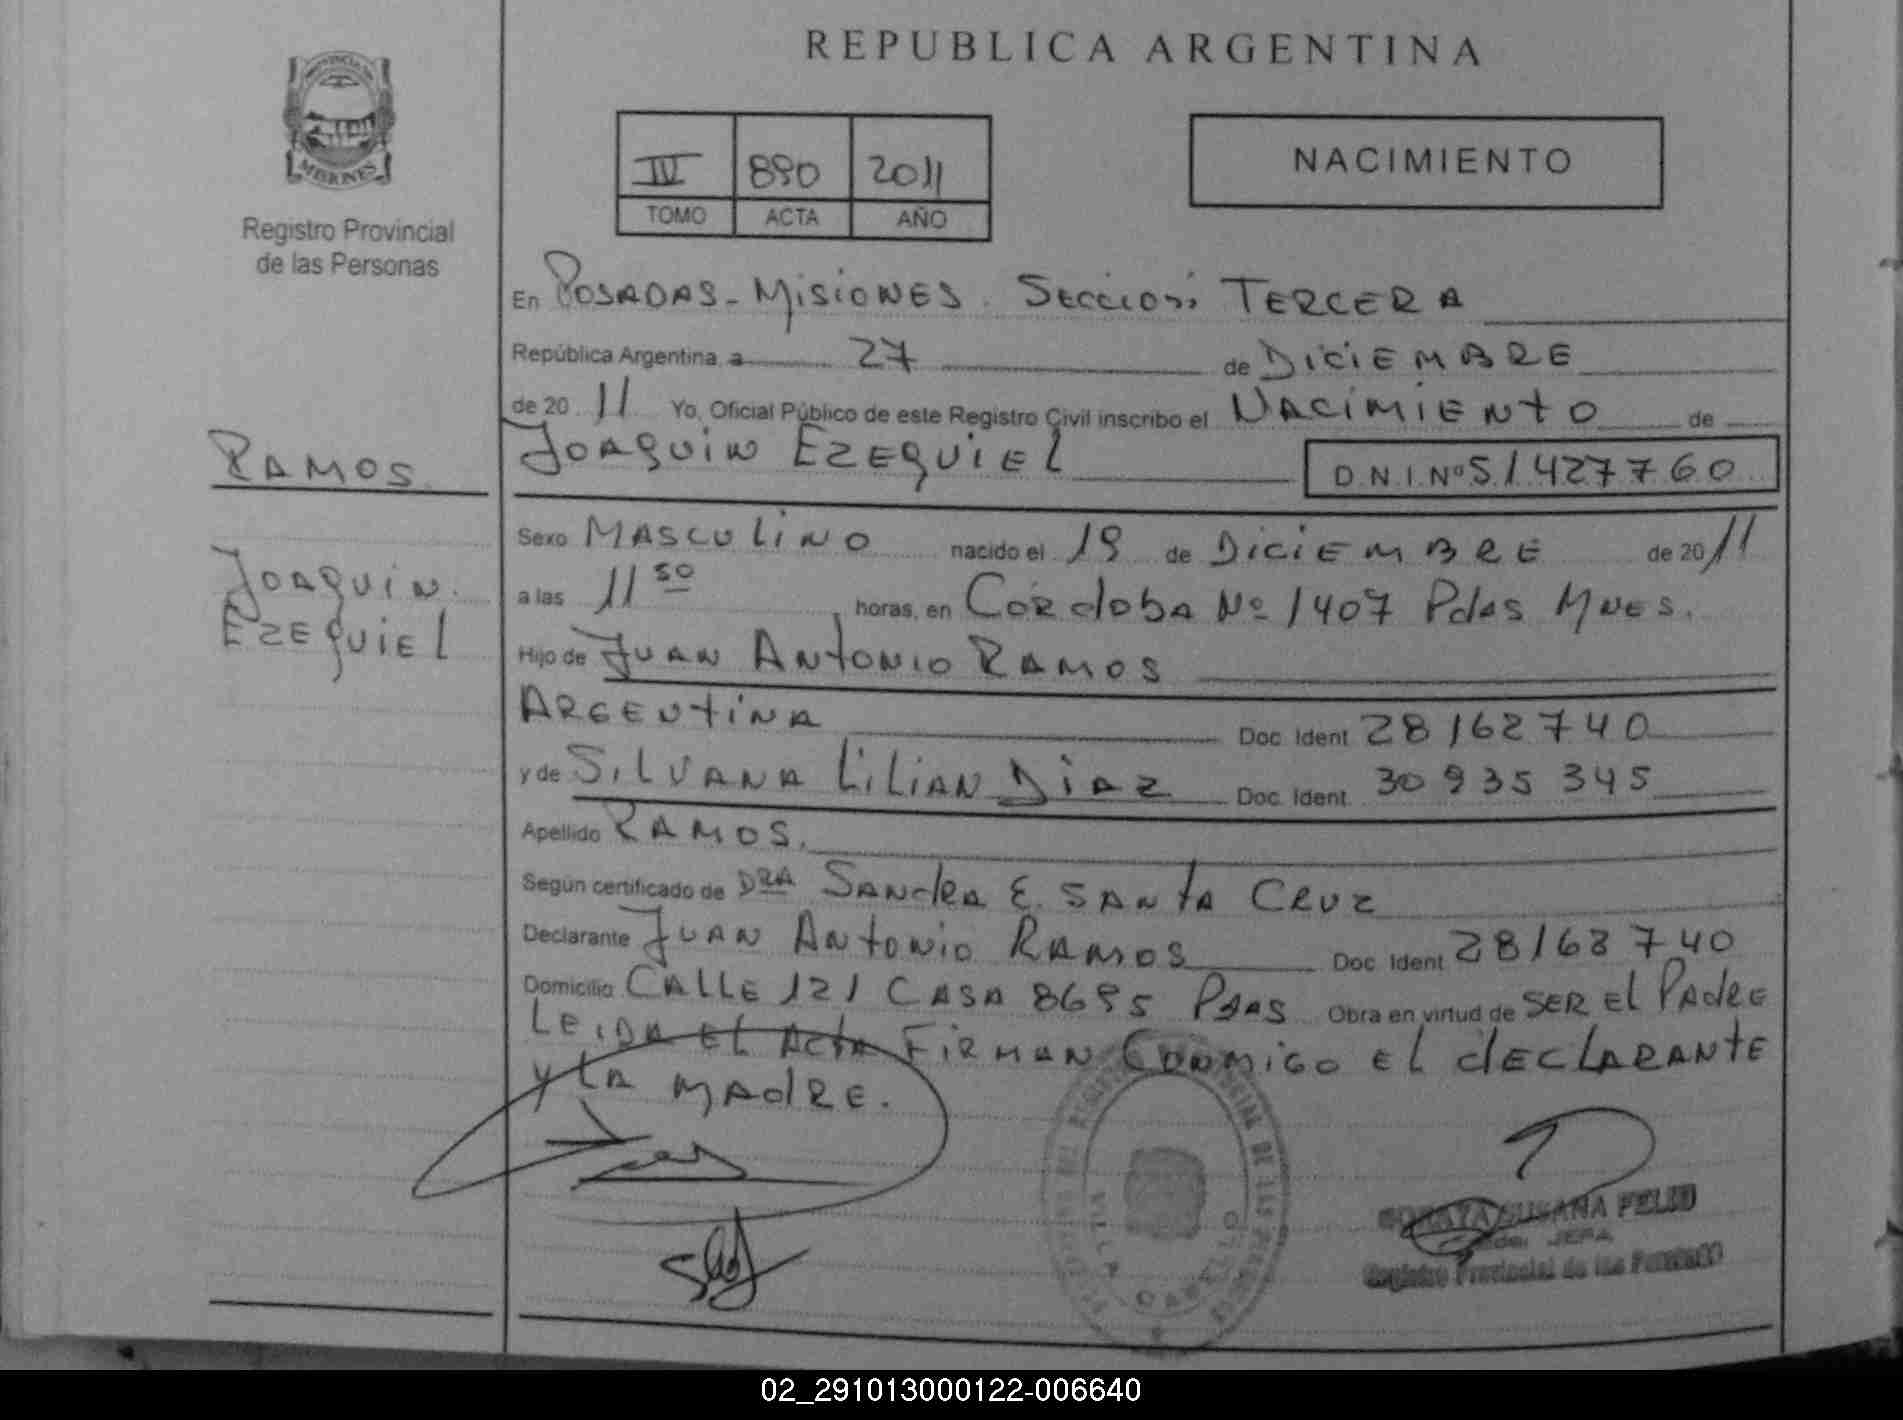 REPUBLICA ARGENTINA
PROVINCIA DE
MISIONES
Registro Provincial
de las Personas
IV 890 2011
TOMO ACTA AÑO
NACIMIENTO
En POSADAS - MISIONES. SECCION TERCERA
República Argentina, a 27 de DICIEMBRE
de 20 11 Yo, Oficial Público de este Registro Civil inscribo el NACIMIENTO de
JOAQUIN EZEQUIEL D.N.I. Nº 51427760
RAMOS.
JOAQUIN.
EZEQUIEL
Sexo MASCULINO nacido el 19 de DICIEMBRE de 20 11
a las 11 50 horas, en CORdobA Nº 1407 PdAS MNES.
Hijo de JUAN ANTONIO RAMOS
ARGENTINA Doc. Ident. 28162740
y de SILVANA LILIAN DIAZ Doc. Ident. 30935345
Apellido RAMOS.
Según certificado de DRA SANdRA E. SANTA CRUZ
Declarante JUAN ANTONIO RAMOS Doc. Ident. 28162740
Domicilio CALLE 121 CASA 8695 PdAS Obra en virtud de SER EL PAdRE
LEIDA EL ACTA FIRMAN CONMIGO EL dECLARANTE
y LA MAdRE.
SORAYA SUSANA FELIU
JEFA
Registro Provincial de las Personas
02_291013000122-006640